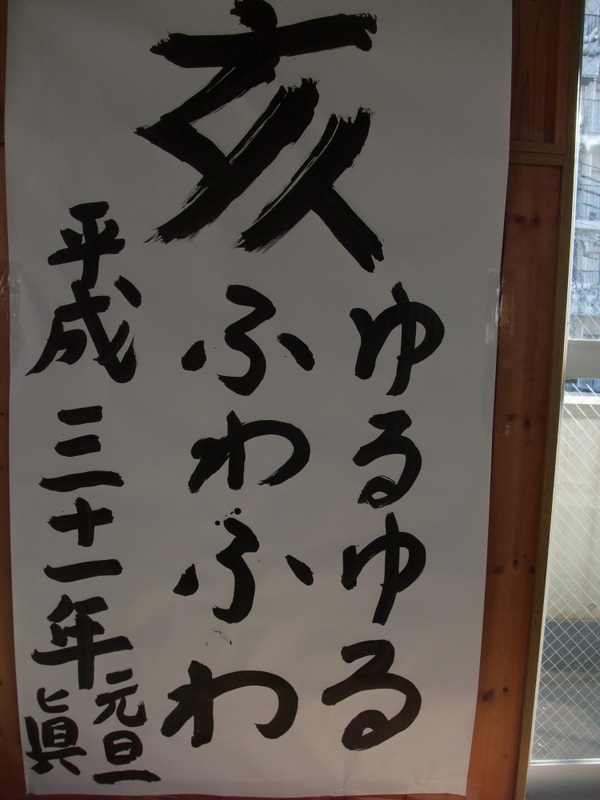 亥
ゆるゆる
ふわふわ
平成三十一年
元旦
眞